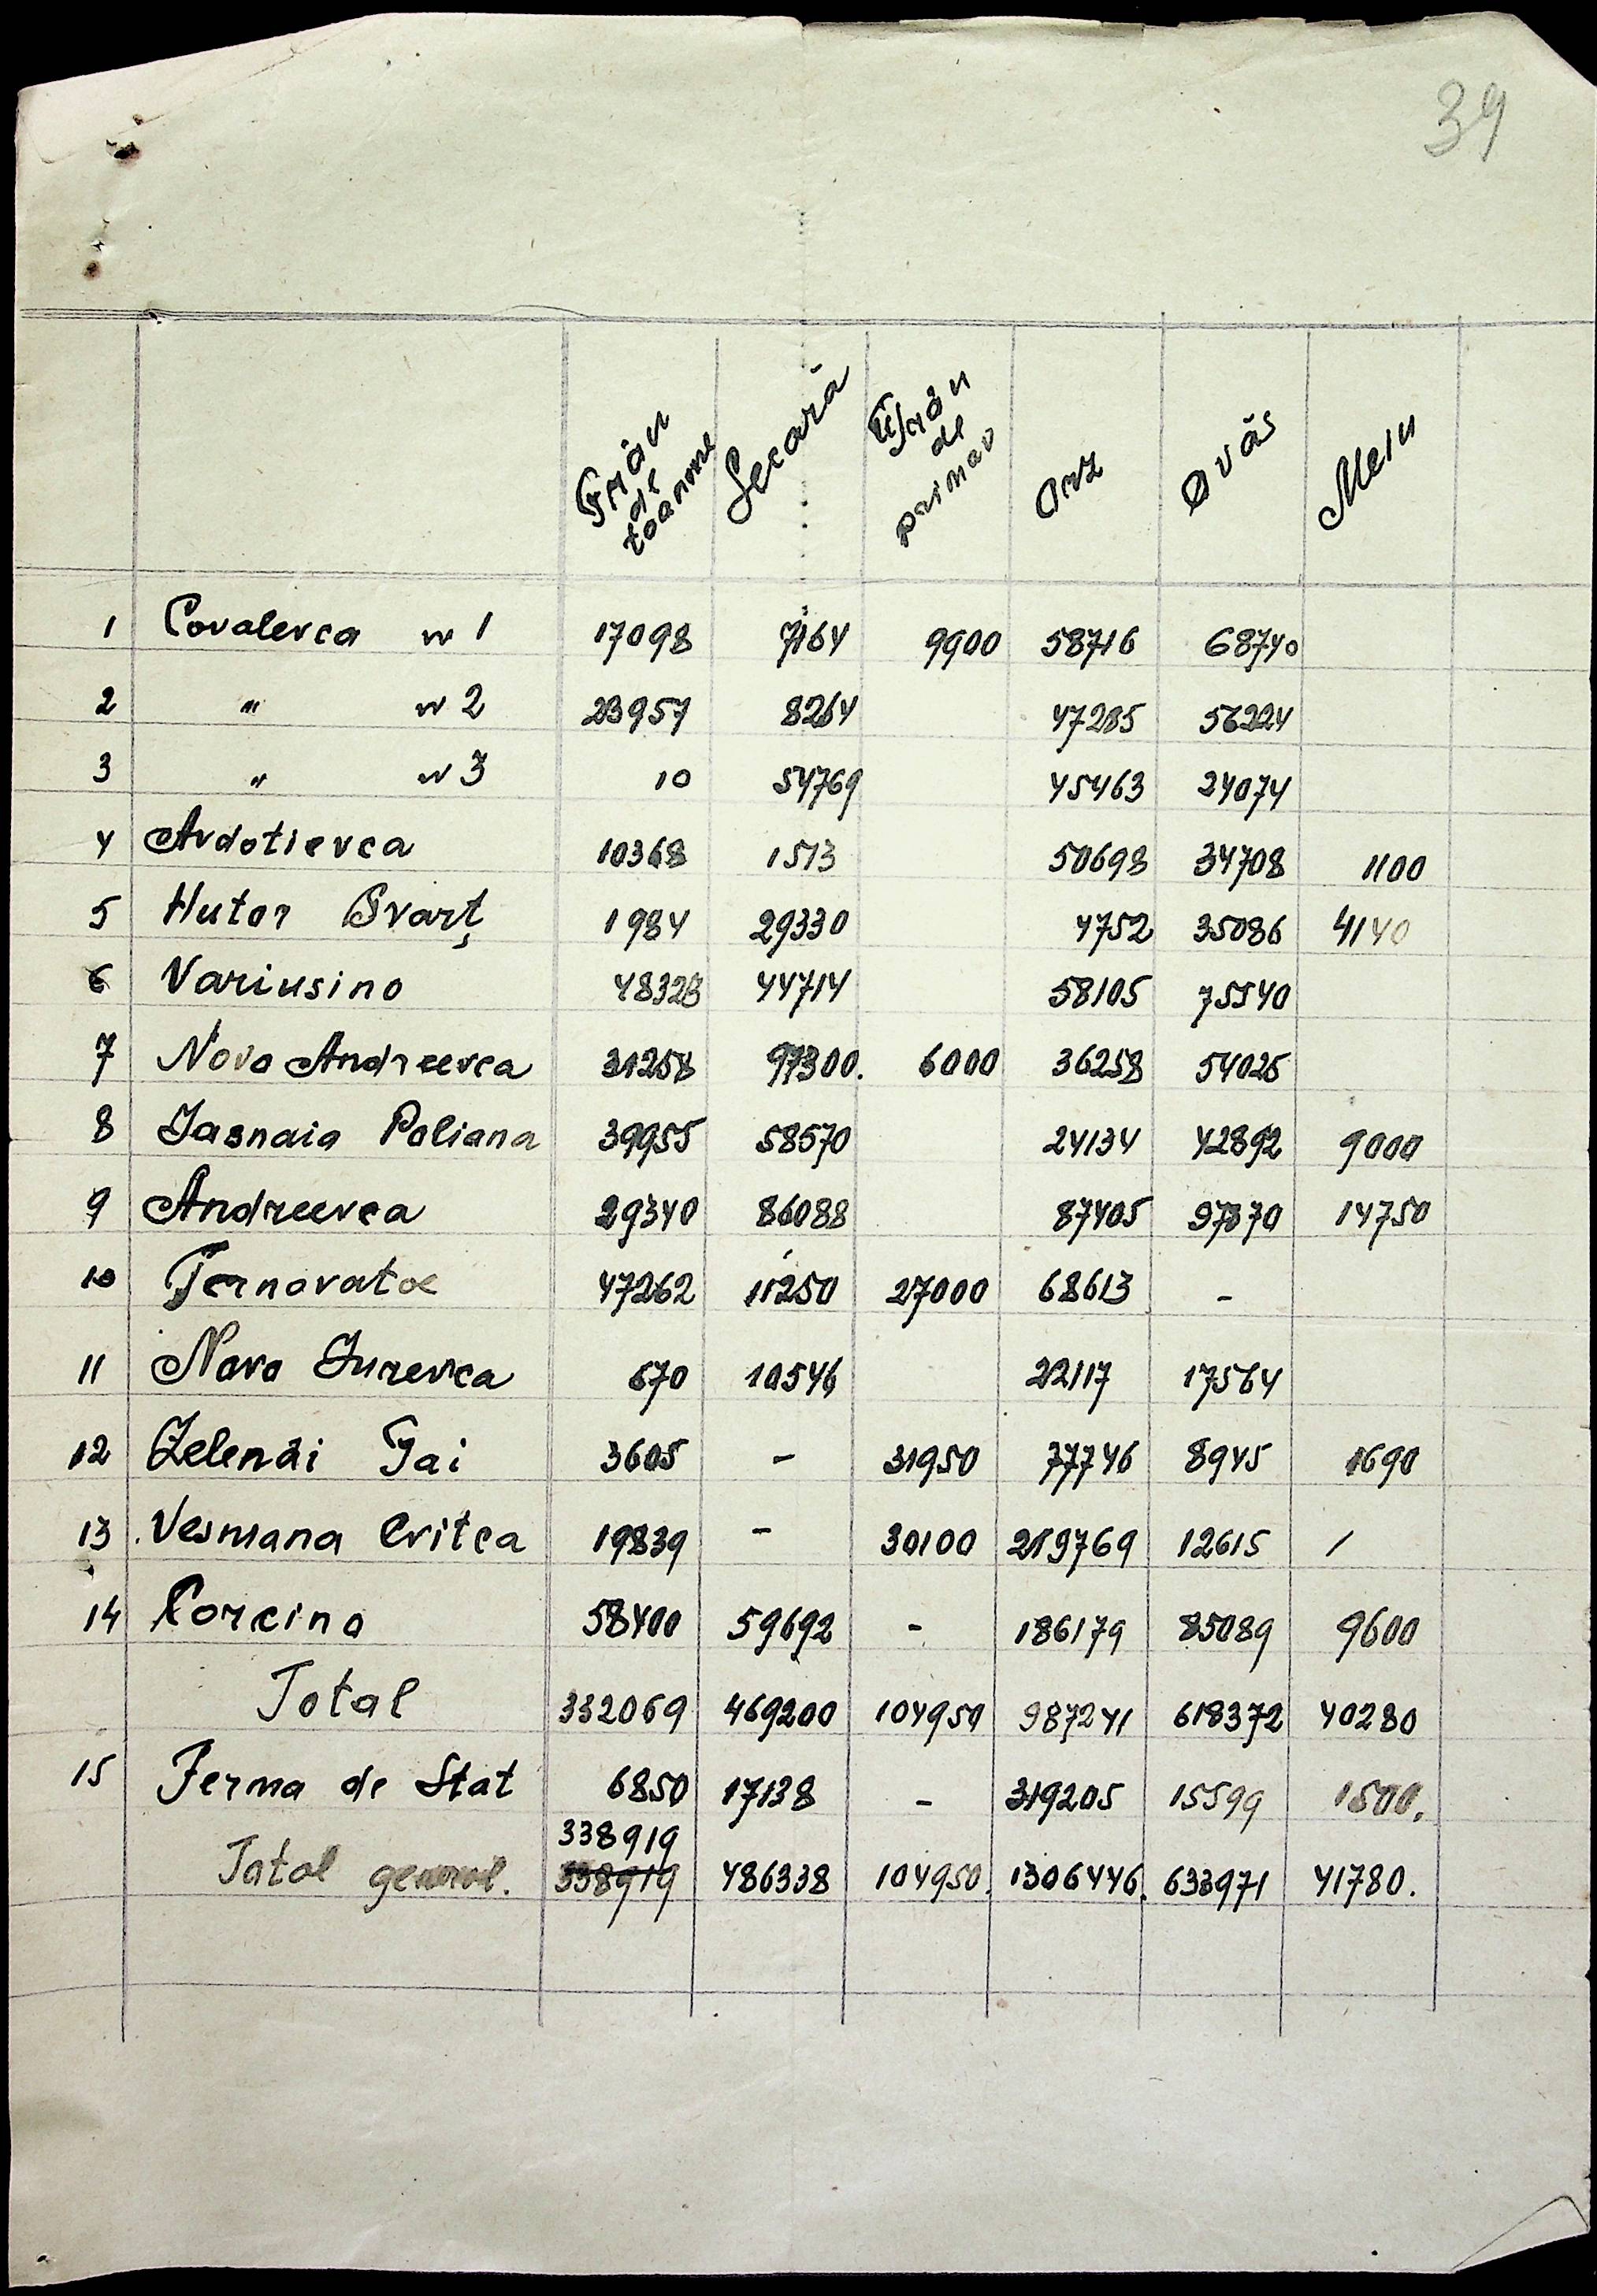 39
Grâu de toamnă Secară Grâu de primăv Orz Ovăs Meiu
1 Covalevca N 1 17098 7164 9900 58716 68740
2 " N 2 23951 8264 47285 56224
3 " N 3 10 54769 45463 24074
4 Avdotievca 10368 1513 50698 34708 1100
5 Hutor Svarţ 1984 29330 4752 35086 4140
6 Variusino 48328 44714 58105 75540
7 Novo Andreevca 31258 97300. 6000 36258 54025
8 Jasnaia Poliana 39955 58570 24134 42892 9000
9 Andreevca 29340 86088 87405 97870 14750
10 Ternovatoe 47262 11250 27000 68613 -
11 Novo Jurevca 670 10546 22117 17564
12 Zelenâi Gai 3605 - 31950 77746 8945 1690
13 Vesmana Cvitca 19839 - 30100 219769 12615 /
14 Corcino 58400 59692 - 186179 85089 9600
Total 332069 469200 104950 987241 618372 40280
15 Ferma de Stat 6850 17138 - 319205 15599 1500.
338919
Total general. 338919 486338 104950. 1306446. 633971 41780.